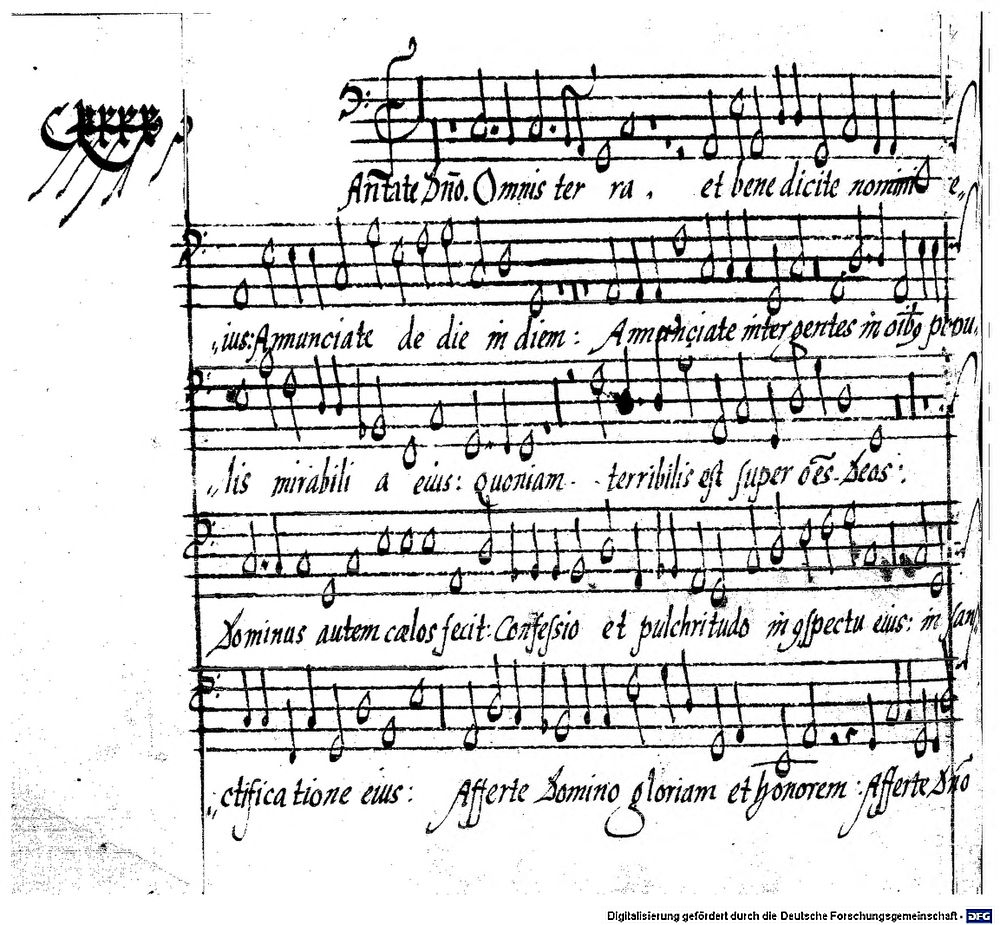 CANtate Dño. Omnis ter ra. et bene dicite nomini e„
„ius: Annunciate de die in diem: Annunciate inter gentes in oib9 popu„
„lis mirabili a eius: quoniam terribilis est super oẽs Deos:
Dominus autem cælos fecit: Confessio et pulchritudo in 9spectu eius: in san„
„ctifica tione eius: Afferte Domino gloriam et honorem: Afferte Dño
Digitalisierung gefördert durch die Deutsche Forschungsgemeinschaft - DFG